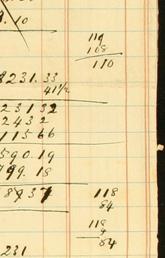 .10
119
108
110
8231.33
41 1/2
23132
2432
11566
590.19
799.18
8937
118
84
118
84
231